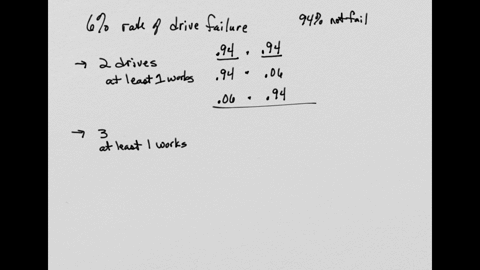 6% rate of drive failure
94% not fail
→ 2 drives
at least 1 works
.94 · .94
.94 · .06
.06 · .94
→ 3
at least 1 works